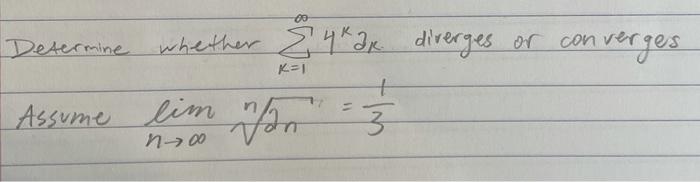 Determine whether ∞∑K=1 4^K a_K diverges or converges
Assume lim n→∞ ⁿ√a_n = 1/3